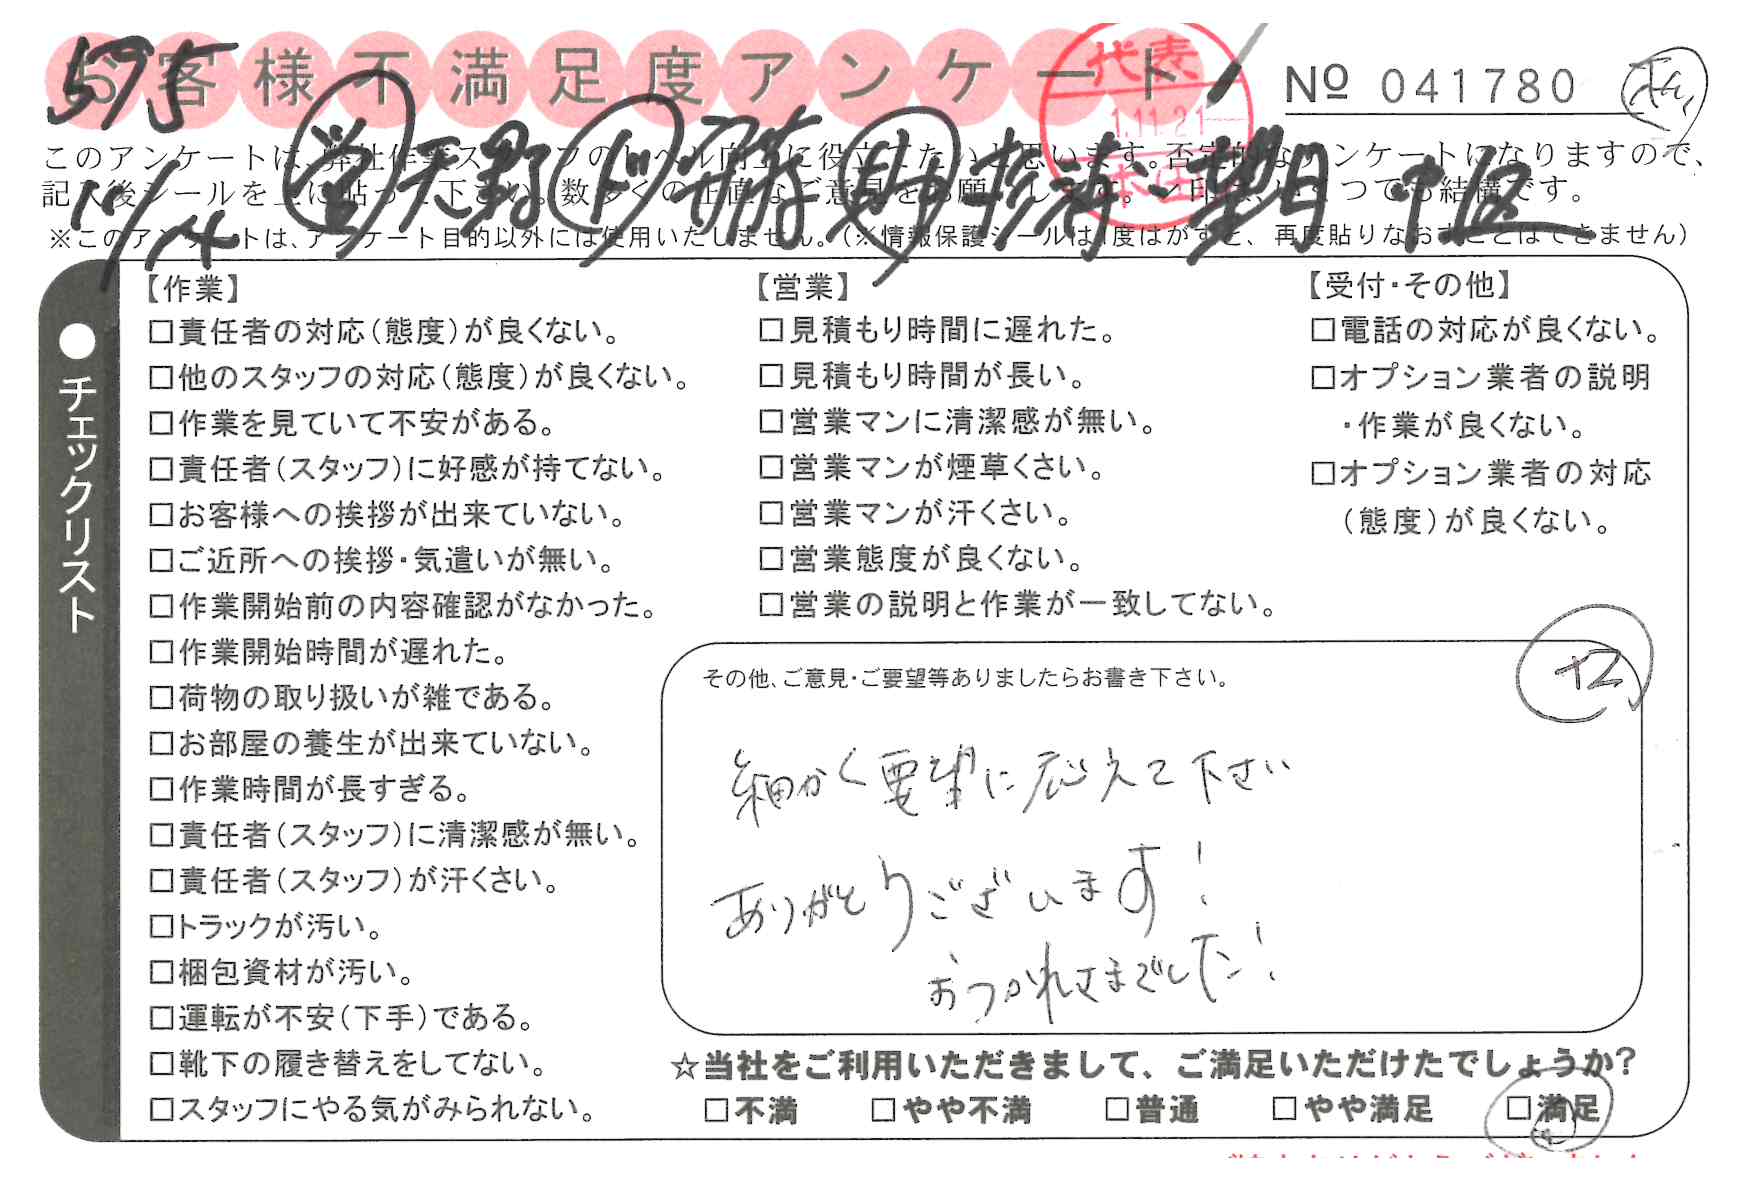 お客様不満足度アンケート
代表
1.11.21
本田
№ 041780
575
10/14
営 天野 ド 助 中区
このアンケートは、弊社作業スタッフのレベル向上に役立てたいと思います。否定的なアンケートになりますので、
記入後シールを上に貼って下さい。数多くの正直なご意見をお願いします。レ印は、いくつでも結構です。
※このアンケートは、アンケート目的以外には使用いたしません。(※情報保護シールは1度はがすと、再度貼りなおすことはできません)
●チェックリスト
【作業】
□責任者の対応(態度)が良くない。
□他のスタッフの対応(態度)が良くない。
□作業を見ていて不安がある。
□責任者(スタッフ)に好感が持てない。
□お客様への挨拶が出来ていない。
□ご近所への挨拶・気遣いが無い。
□作業開始前の内容確認がなかった。
□作業開始時間が遅れた。
□荷物の取り扱いが雑である。
□お部屋の養生が出来ていない。
□作業時間が長すぎる。
□責任者(スタッフ)に清潔感が無い。
□責任者(スタッフ)が汗くさい。
□トラックが汚い。
□梱包資材が汚い。
□運転が不安(下手)である。
□靴下の履き替えをしてない。
□スタッフにやる気がみられない。
【営業】
□見積もり時間に遅れた。
□見積もり時間が長い。
□営業マンに清潔感が無い。
□営業マンが煙草くさい。
□営業マンが汗くさい。
□営業態度が良くない。
□営業の説明と作業が一致してない。
【受付・その他】
□電話の対応が良くない。
□オプション業者の説明
・作業が良くない。
□オプション業者の対応
(態度)が良くない。
その他、ご意見・ご要望等ありましたらお書き下さい。
細かく要望に応えて下さい
ありがとうございます!
おつかれさまでした!
☆当社をご利用いただきまして、ご満足いただけたでしょうか?
□不満 □やや不満 □普通 □やや満足 □満足